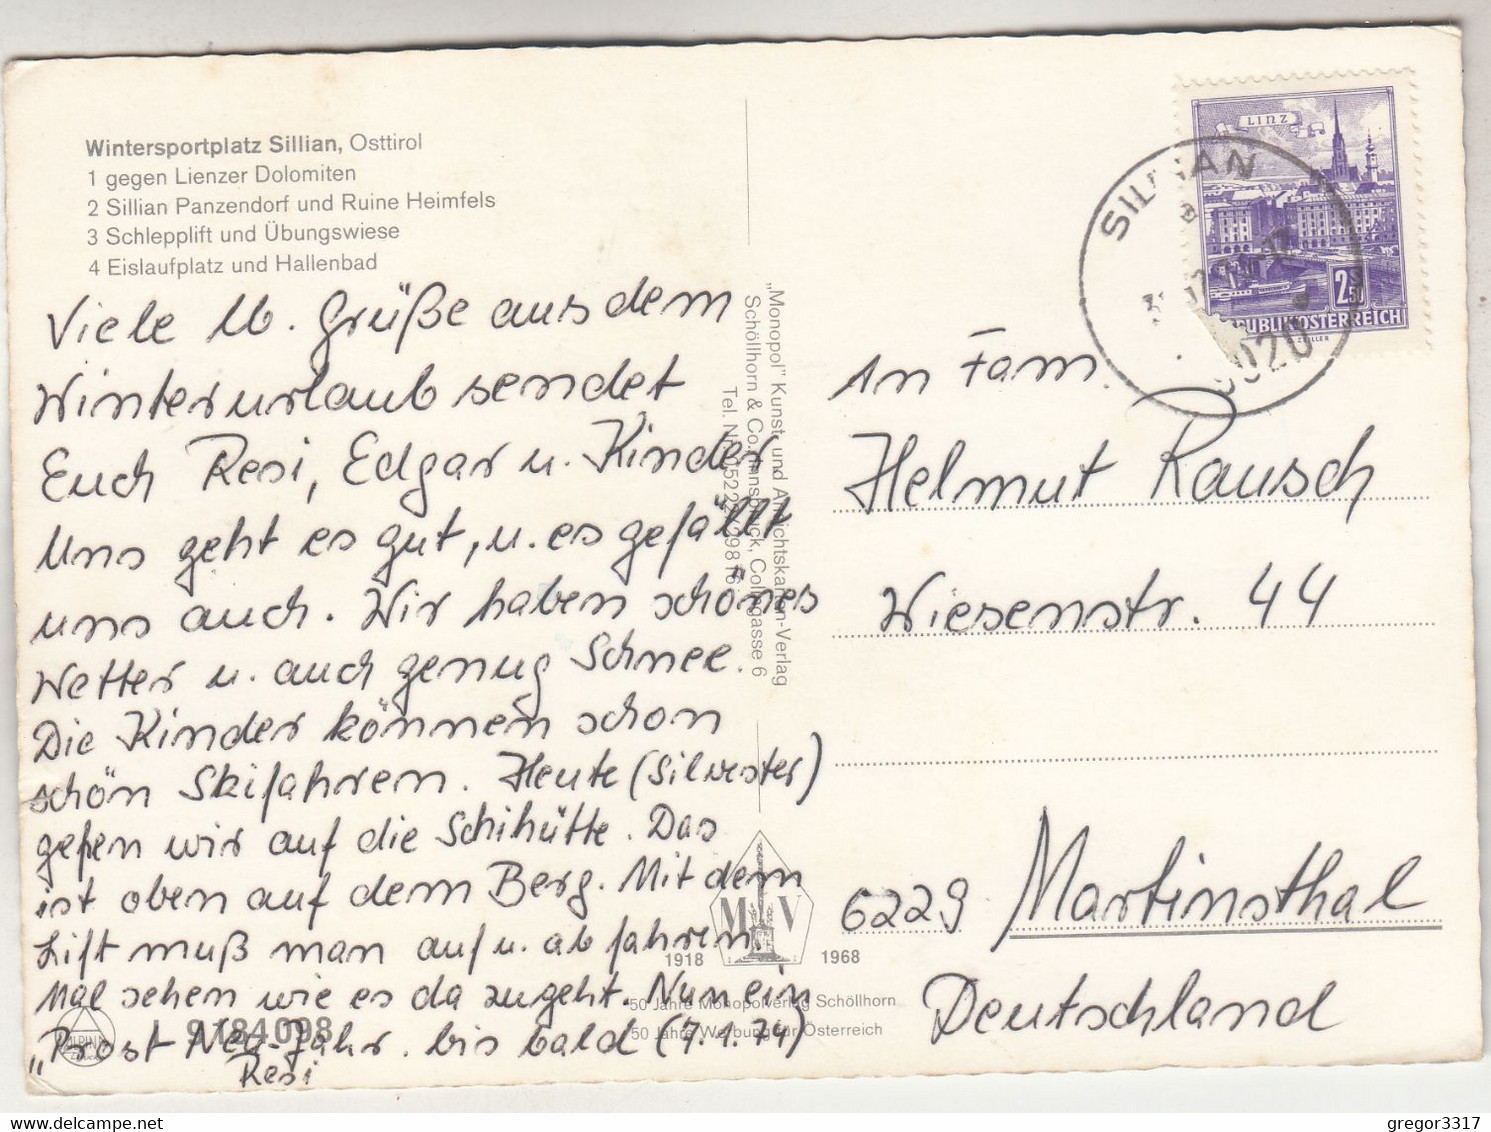 Wintersportplatz Sillian, Osttirol
1 gegen Lienzer Dolomiten
2 Sillian Panzendorf und Ruine Heimfels
3 Schlepplift und Übungswiese
4 Eislaufplatz und Hallenbad
Viele lb. Grüße aus dem
Winterurlaub sendet
Euch Resi, Edgar u. Kinder
Uns geht es gut, u. es gefällt
uns auch. Wir haben schönes
Wetter u. auch genug Schnee.
Die Kinder können schon
schön Skifahren. Heute (Silvester)
gehen wir auf die Schihütte. Das
ist oben auf dem Berg. Mit dem
Lift muß man auf u. ab fahren.
Mal sehen wie es da zugeht. Nun ein
"Prost Neu-Jahr. bis bald (7.1.74)
Resi
L 9184098
"Monopol" Kunst- und Ansichtskarten-Verlag
Schöllhorn & Co. Innsbruck, Colingasse 6
M V
1918 1968
50 Jahre Monopolverlag Schöllhorn
50 Jahre Werbung für Österreich
LINZ
2 50
REPUBLIK ÖSTERREICH
SILLIAN
An Fam.
Helmut Rausch
Wiesenstr. 44
6229 Martinsthal
Deutschland
gregor3317